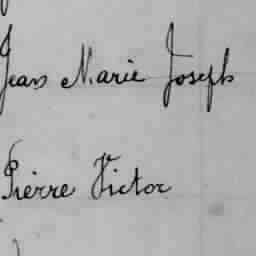 Jean Marie Joseph
Pierre Victor